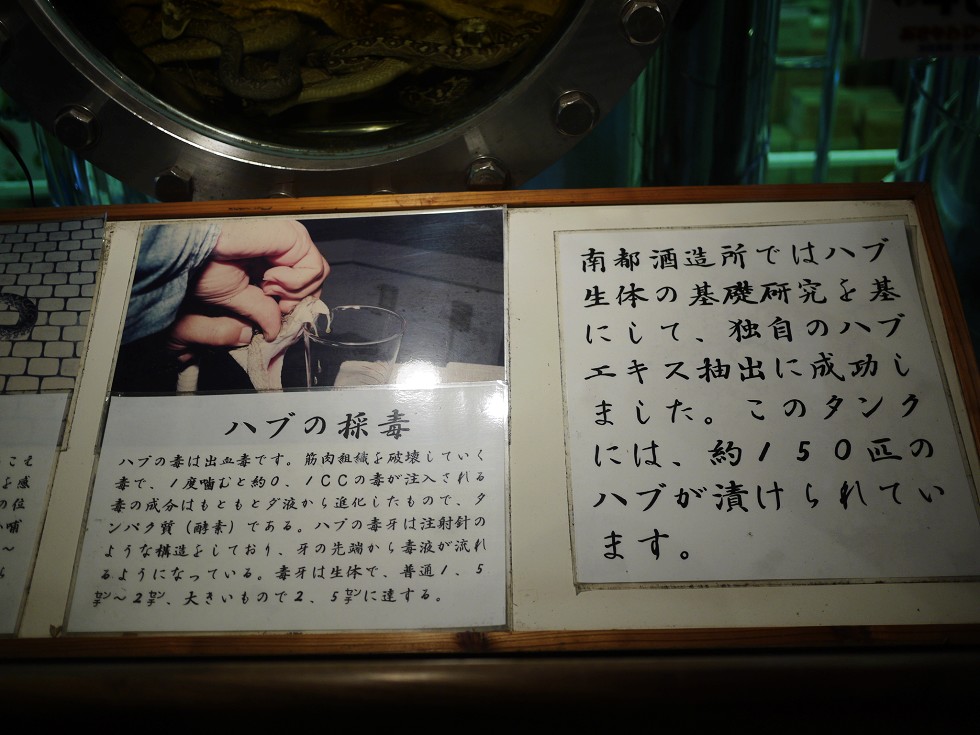 ハブの採毒
ハブの毒は出血毒です。筋肉組織を破壊していく
毒で、1度噛むと約0、1CCの毒が注入される
毒の成分はもともとダ液から進化したもので、タ
ンパク質（酵素）である。ハブの毒牙は注射針の
ような構造をしており、牙の先端から毒液が流れ
るようになっている。毒牙は生体で、普通1、5
㌢～2㌢、大きいもので2、5㌢に達する。
南都酒造所ではハブ
生体の基礎研究を基
にして、独自のハブ
エキス抽出に成功し
ました。このタンク
には、約150匹の
ハブが漬けられてい
ます。